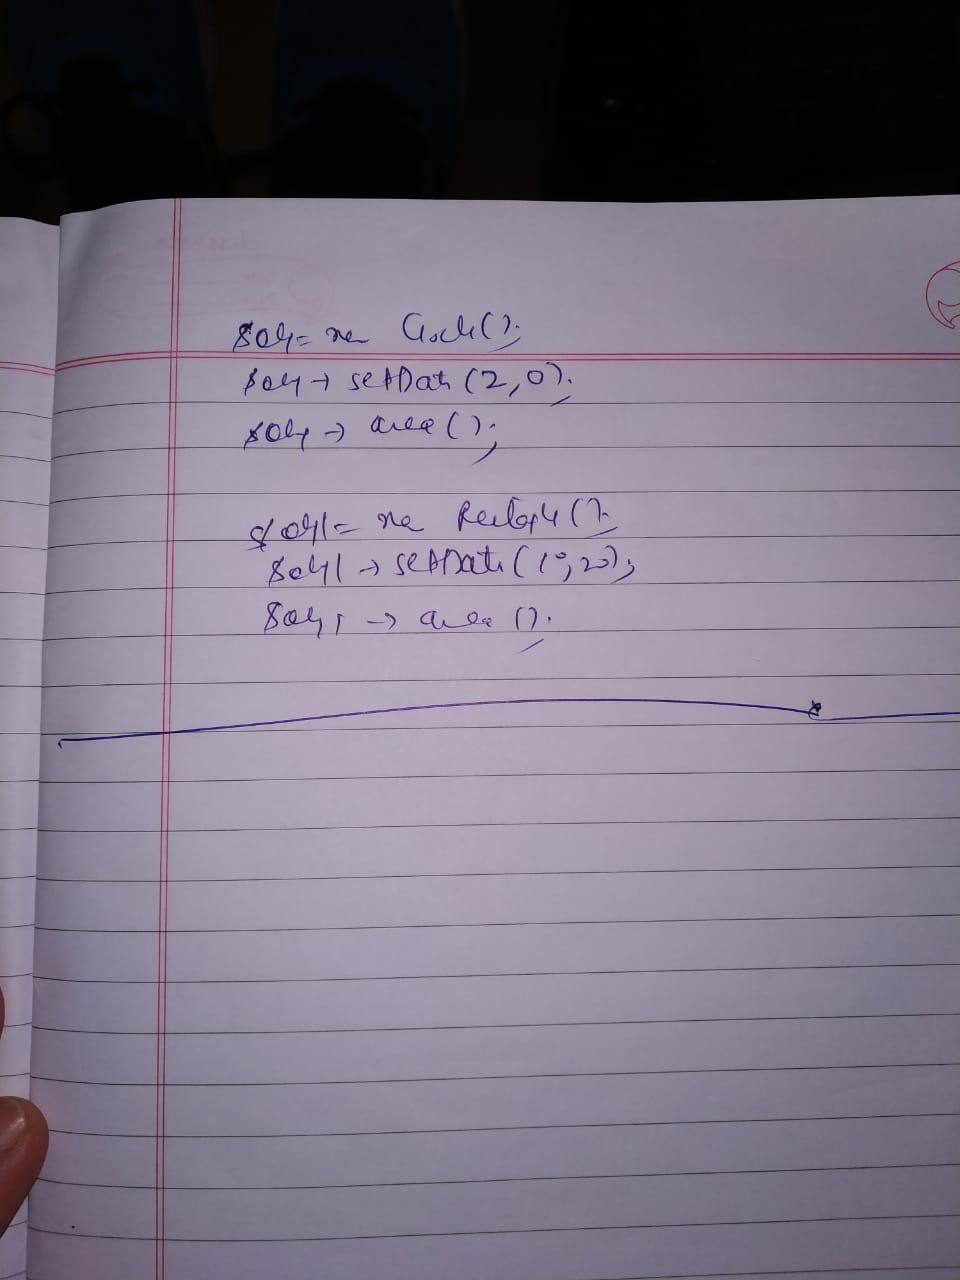 $obj = new Circle();
$obj → setData (2,0);
$obj → area();
$obj1 = new Rectangle();
$obj1 → setData (10,20);
$obj1 → area();